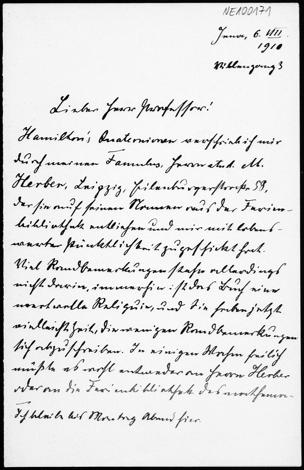 NE100171
Jena, 6. VIII.
1910
Lieber Herr Professor!
Hamilton's Quaternionen verschrieb ich mir
durch meinen Famulus, Herrn stud. M.
Herber, Leipzig, Eilenburgerstrasse 58,
der sie auf seinen Namen aus der Ferien-
bibliothek entliehen und mir mit lobens-
werter Pünktlichkeit zugeschickt hat.
Viel Randbemerkungen stehn allerdings
nicht darin, immerhin ist das Buch eine
wertvolle Reliquie, und Sie haben jetzt
vielleicht Zeit, die wenigen Randbemerkungen
sich abzuschreiben. In einigen Wochen freilich
müßte es wohl entweder an Herrn Herber
oder an die Ferienbibliothek des mathema-
Ich bleibe bis Montag Abend hier.